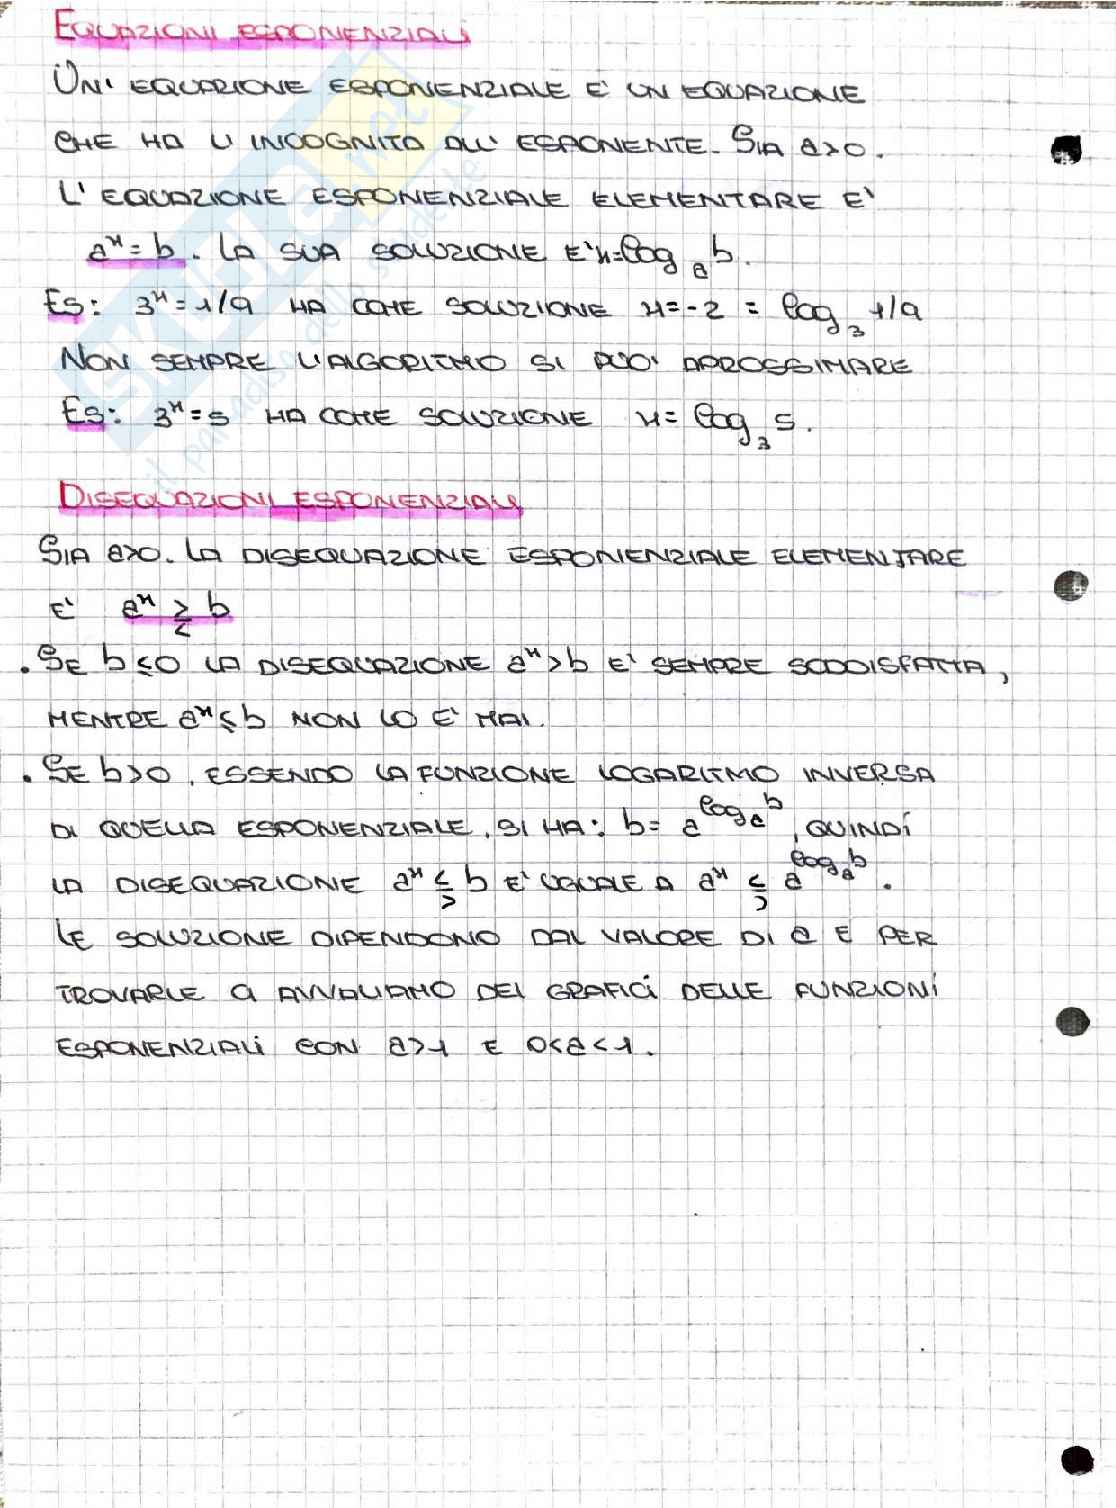 EQUAZIONI ESPONENZIALI
UN' EQUAZIONE ESPONENZIALE E' UN EQUAZIONE
CHE HA L'INCOGNITA ALL' ESPONENTE. SIA a>0.
L'EQUAZIONE ESPONENZIALE ELEMENTARE E'
aˣ = b. LA SUA SOLUZIONE E' x=logₐ b.
ES: 3ˣ = 1/9 HA COME SOLUZIONE x=-2 = log₃ 1/9
NON SEMPRE L'ALGORITMO SI PUO' APROSSIMARE
ES: 3ˣ = 5 HA COME SOLUZIONE x = log₃ 5.
DISEQUAZIONI ESPONENZIALI
SIA a>0. LA DISEQUAZIONE ESPONENZIALE ELEMENTARE
E' aˣ ≷ b
. SE b≤0 LA DISEQUAZIONE aˣ>b E' SEMPRE SODDISFATTA,
MENTRE aˣ≤b NON LO E' MAI.
. SE b>0, ESSENDO LA FUNZIONE LOGARITMO INVERSA
DI QUELLA ESPONENZIALE, SI HA: b= a^logₐb, QUINDI
LA DISEQUAZIONE aˣ ≶ b E' UGUALE A aˣ ≶ a^logₐb.
LE SOLUZIONE DIPENDONO DAL VALORE DI a E PER
TROVARLE CI AVVALIAMO DEI GRAFICI DELLE FUNZIONI
ESPONENZIALI CON a>1 E 0<a<1.
skuola.net
il paradiso dello studente